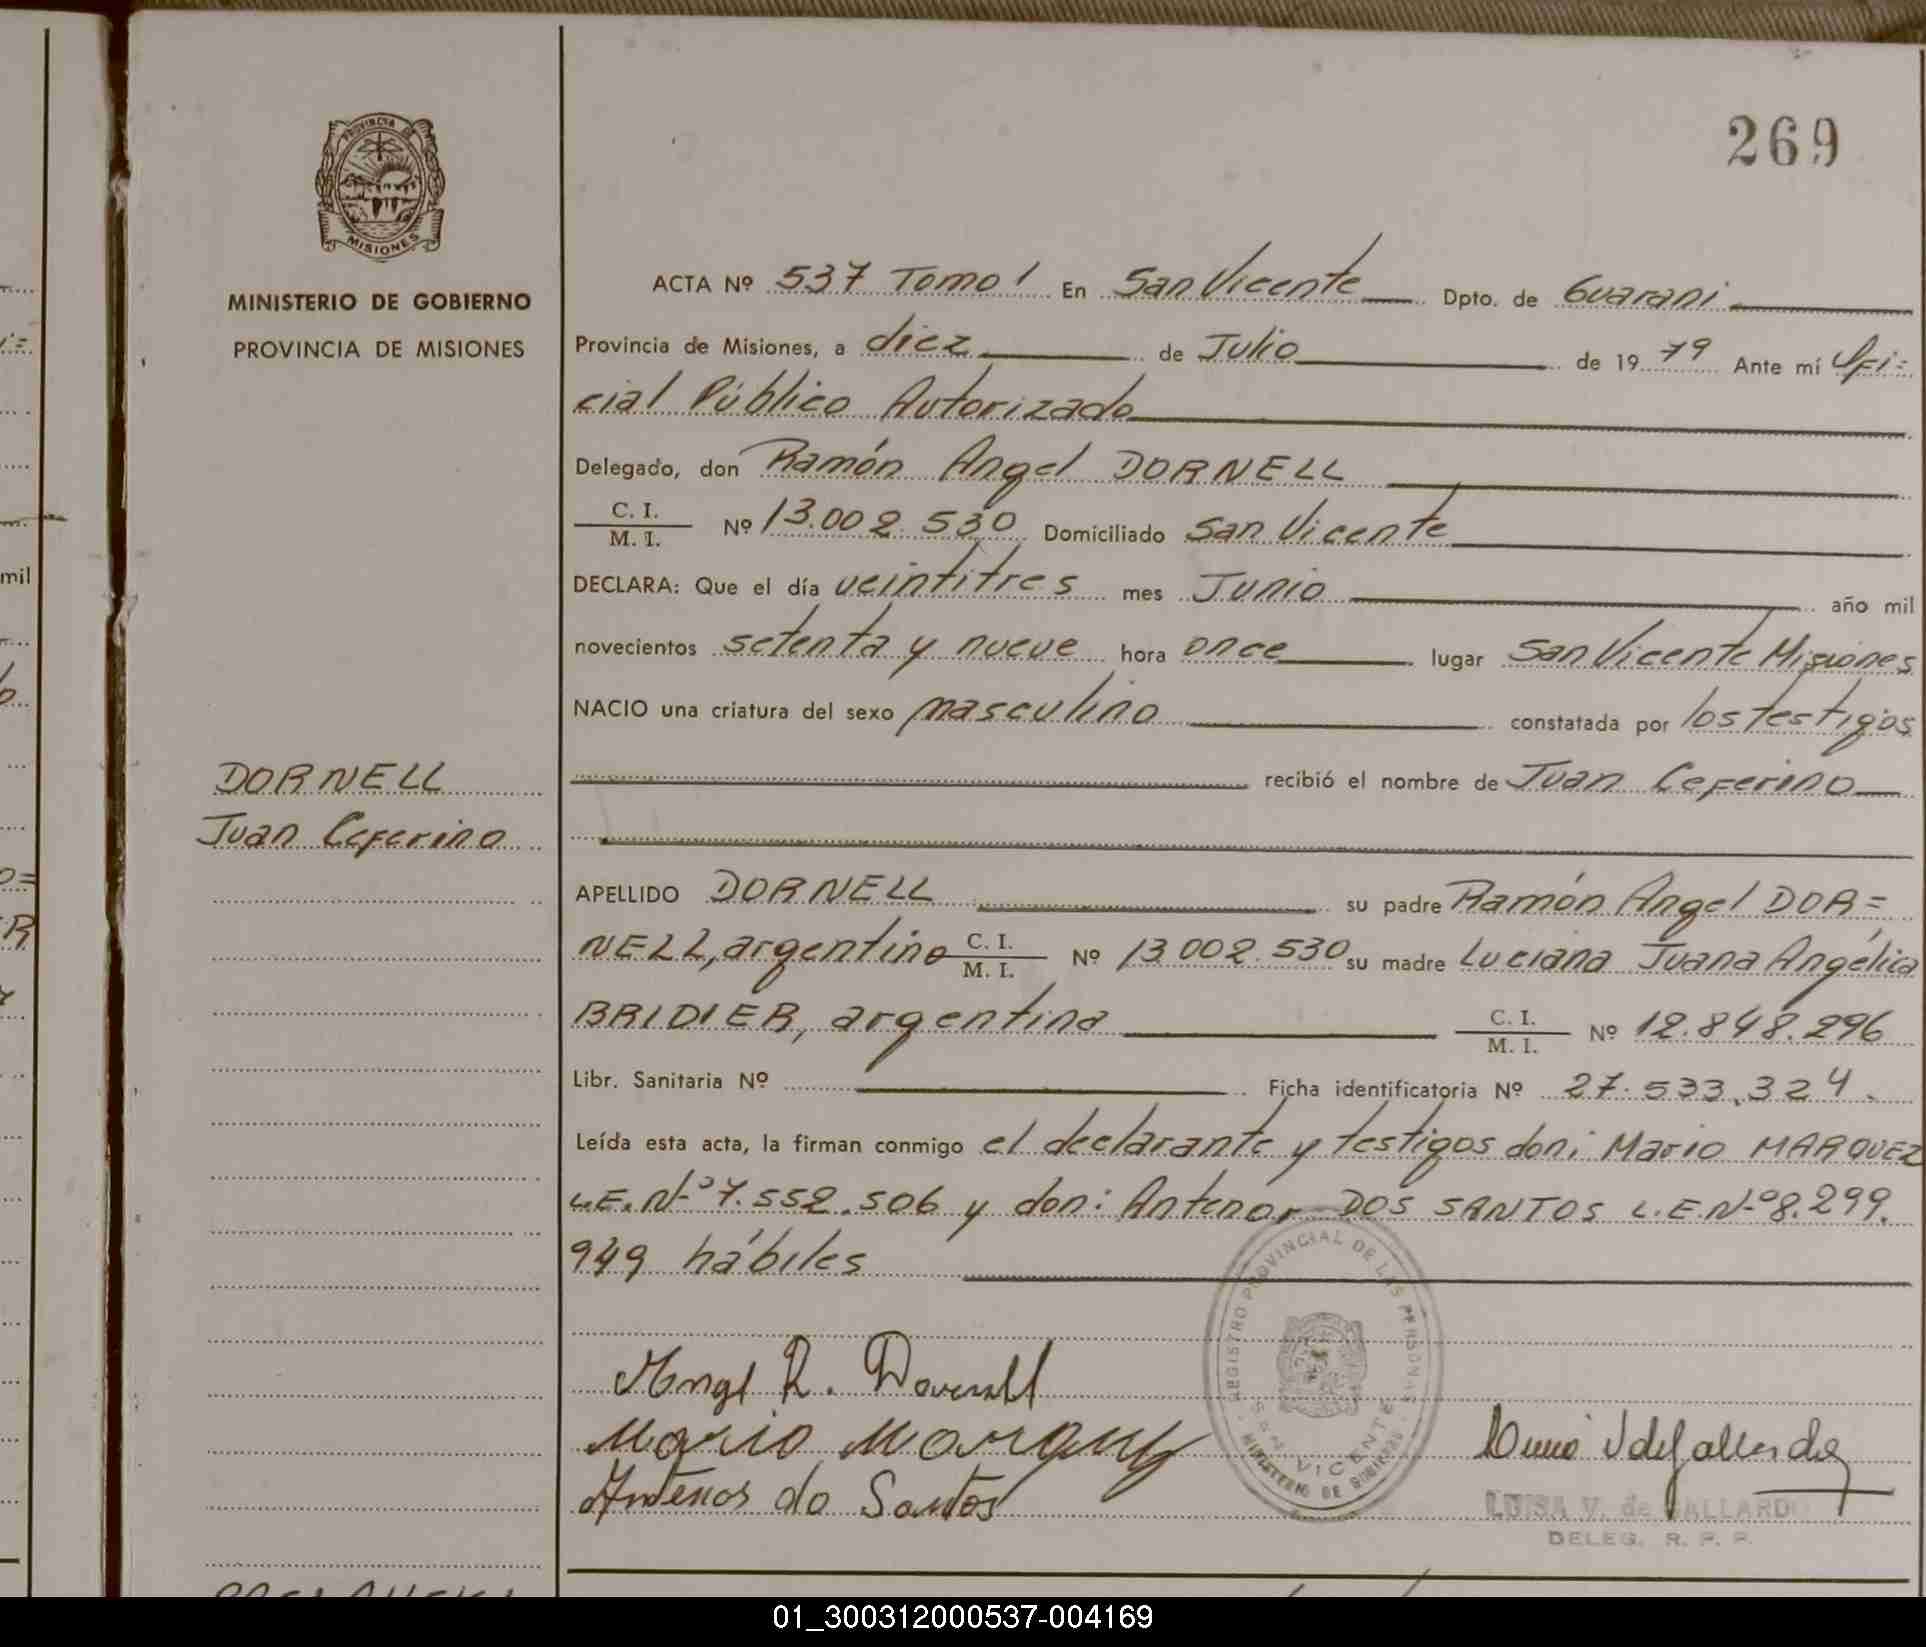 269
PROVINCIA DE
MISIONES
MINISTERIO DE GOBIERNO
PROVINCIA DE MISIONES
DORNELL
Juan Ceferino
ACTA Nº 537 Tomo 1 En San Vicente Dpto. de Guarani
Provincia de Misiones, a diez de Julio de 1979 Ante mí Ofi=
cial Público Autorizado
Delegado, don Ramón Angel DORNELL
C. I.
M. I. Nº 13.002.530 Domiciliado San Vicente
DECLARA: Que el día veintitres mes Junio año mil
novecientos setenta y nueve hora once lugar San Vicente Misiones
NACIO una criatura del sexo masculino constatada por los testigos
recibió el nombre de Juan Ceferino
APELLIDO DORNELL su padre Ramón Angel DOR=
NELL, argentino C. I. M. I. Nº 13.002.530 su madre Luciana Juana Angélica
BRIDIER, argentina C. I. M. I. Nº 12.848.296
Libr. Sanitaria Nº Ficha identificatoria Nº 27.533.324.
Leída esta acta, la firman conmigo el declarante y testigos don: Mario MARQUEZ
L.E.Nº 7.552.506 y don: Antenor DOS SANTOS L.E.Nº 8.299.
949 hábiles
REGISTRO PROVINCIAL DE LAS PERSONAS
SAN VICENTE
MINISTERIO DE GOBIERNO
Angel R. Dornell
Mario Marquez
Antenor do Santos
LUISA V. de GALLARDO
DELEG. R. P. P.
01_300312000537-004169